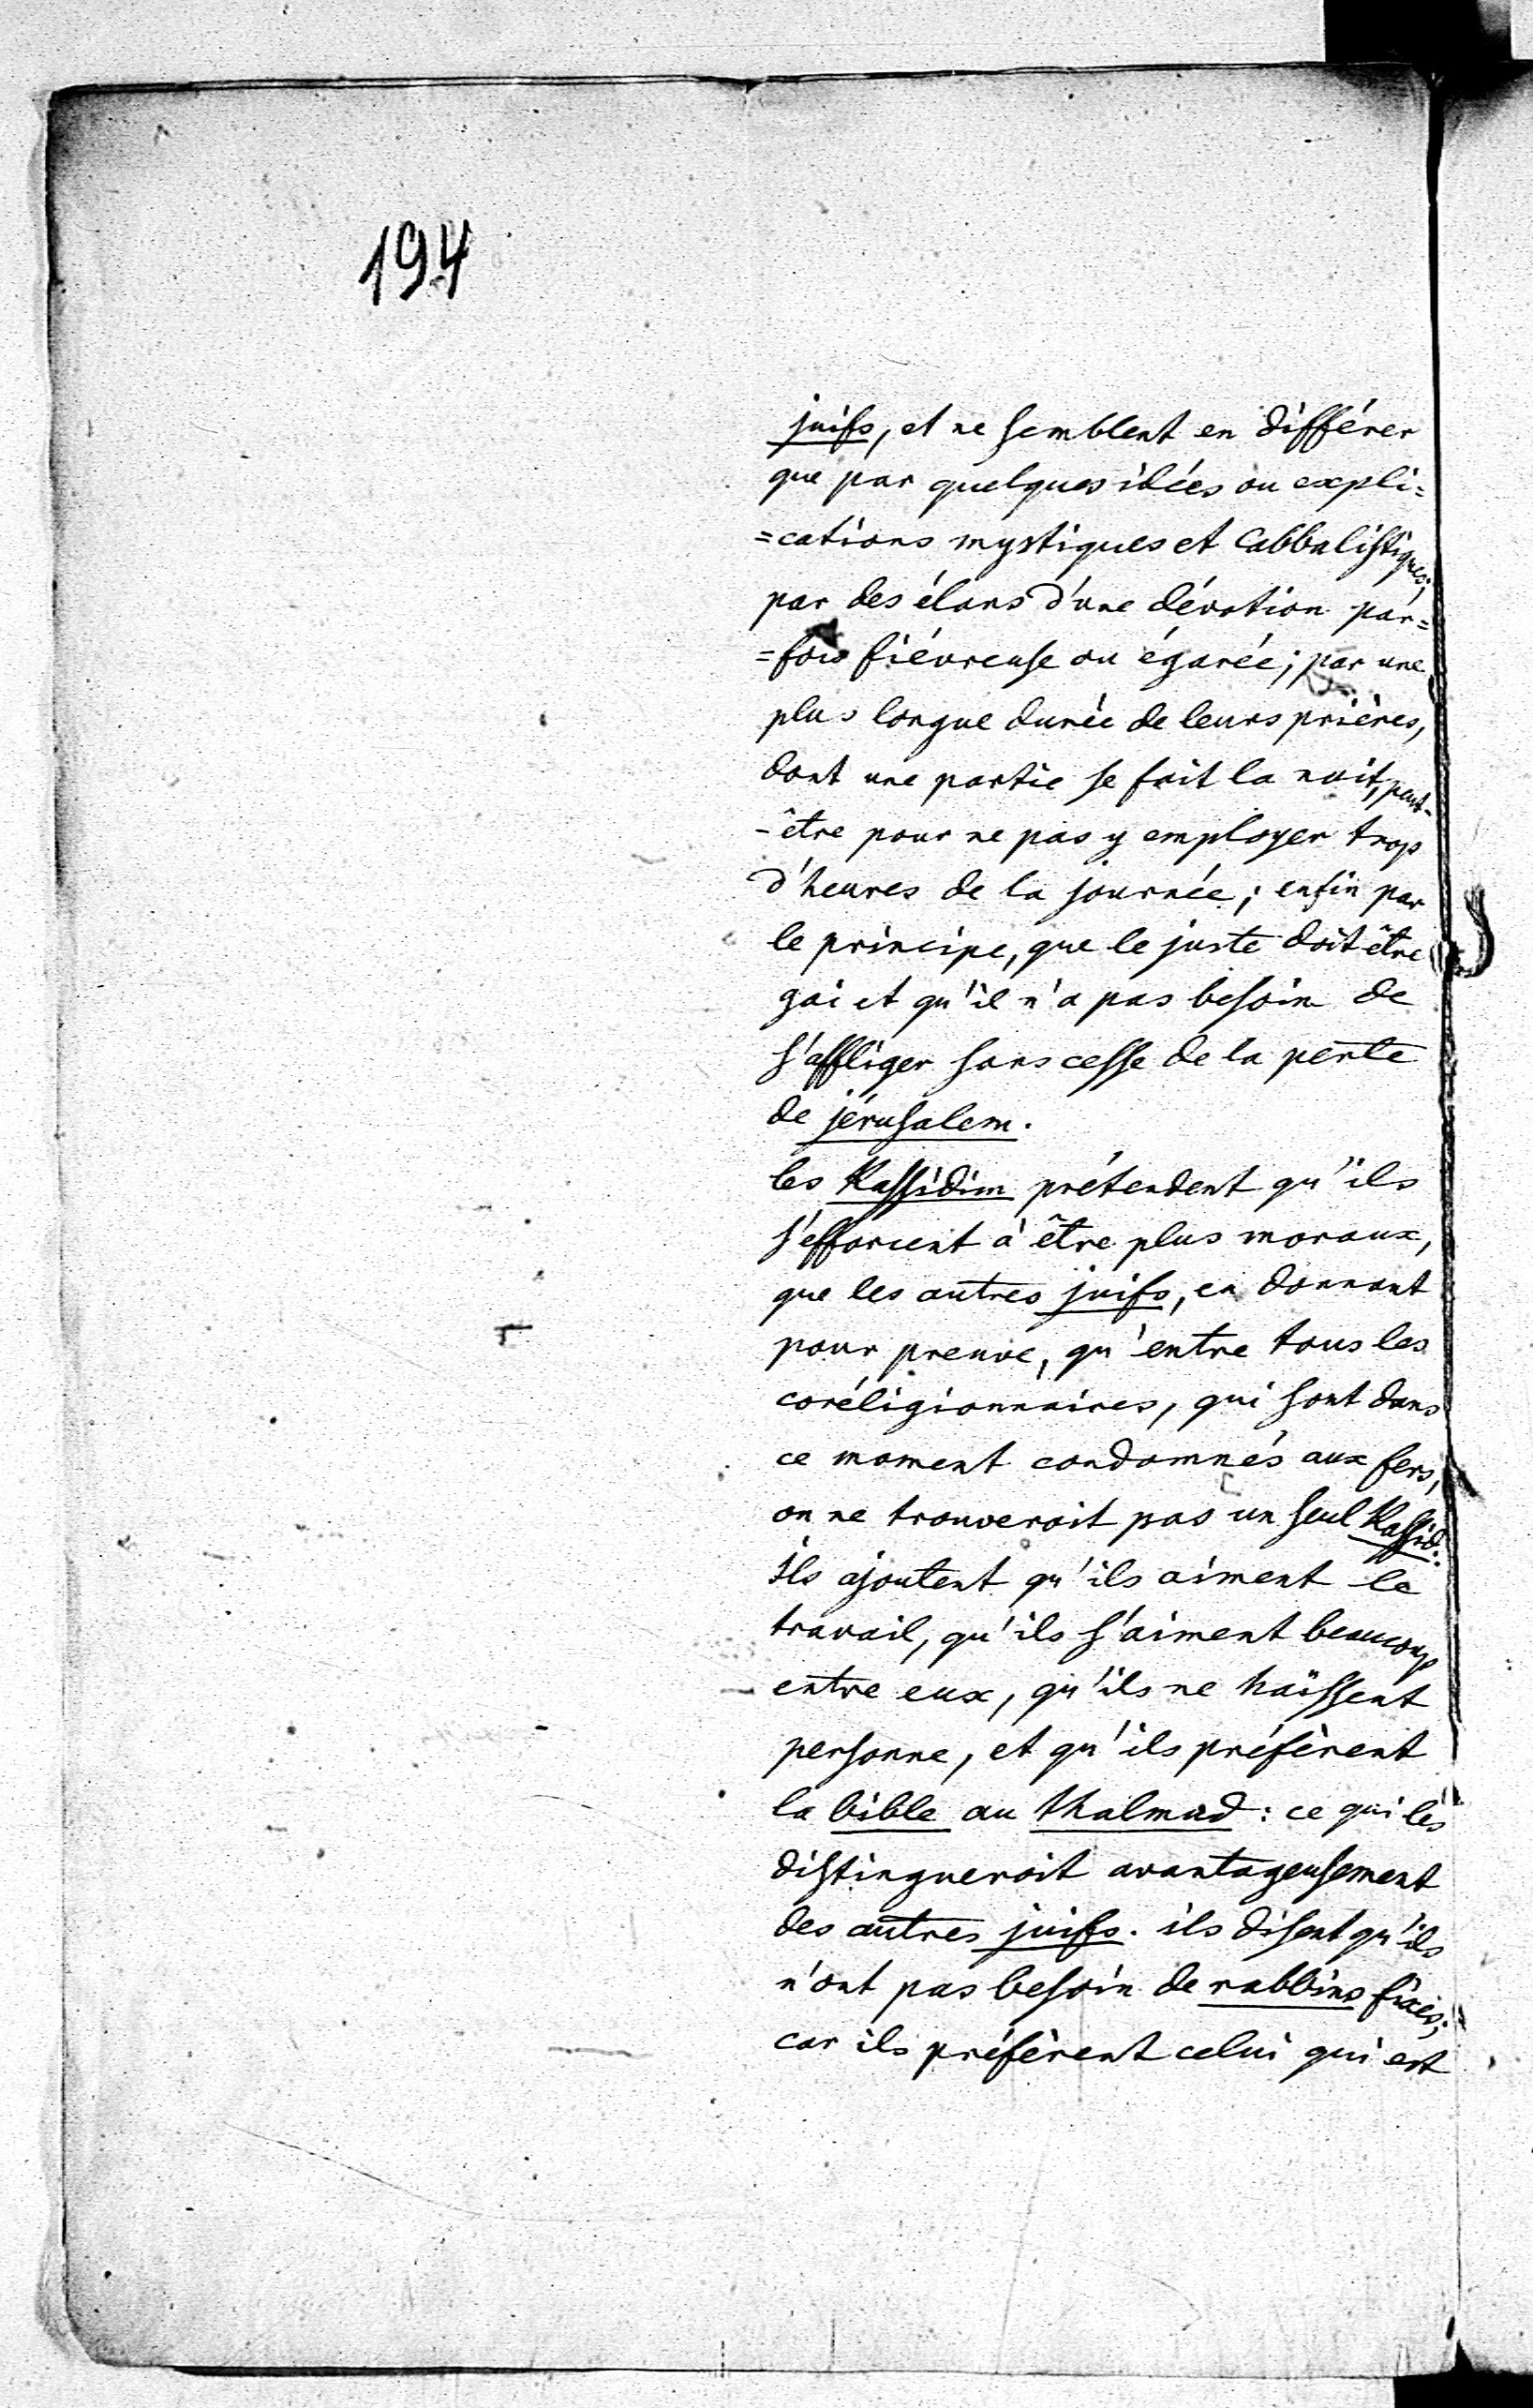 194
juifs, et ne semblent en différer
que par quelques idées ou expli=
=cations mystiques et cabbalistiques;
par des élans d'une dévotion par=
=fois fiévreuse ou égarée; par une
plus longue durée de leurs prières,
dont une partie se fait la nuit, peut-
-être pour ne pas y employer trop
d'heures de la journée; enfin par
le principe, que le juste doit être
gai et qu'il n'a pas besoin de
s'affliger sans cesse de la perte
de jérusalem.
les Kassidim prétendent qu'ils
s'efforcent à être plus moraux,
que les autres juifs, en donnant
pour preuve, qu'entre tous les
coréligionnaires, qui sont dans
ce moment condamnés aux fers,
on ne trouveroit pas un seul Kassid.
ils ajoutent qu'ils aiment le
travail, qu'ils s'aiment beaucoup
entre eux, qu'ils ne haïssent
personne, et qu'ils préfèrent
la bible au thalmud: ce qui les
distingueroit avantageusement
des autres juifs. ils disent qu'ils
n'ont pas besoin de rabbins fixes;
car ils préfèrent celui qui est